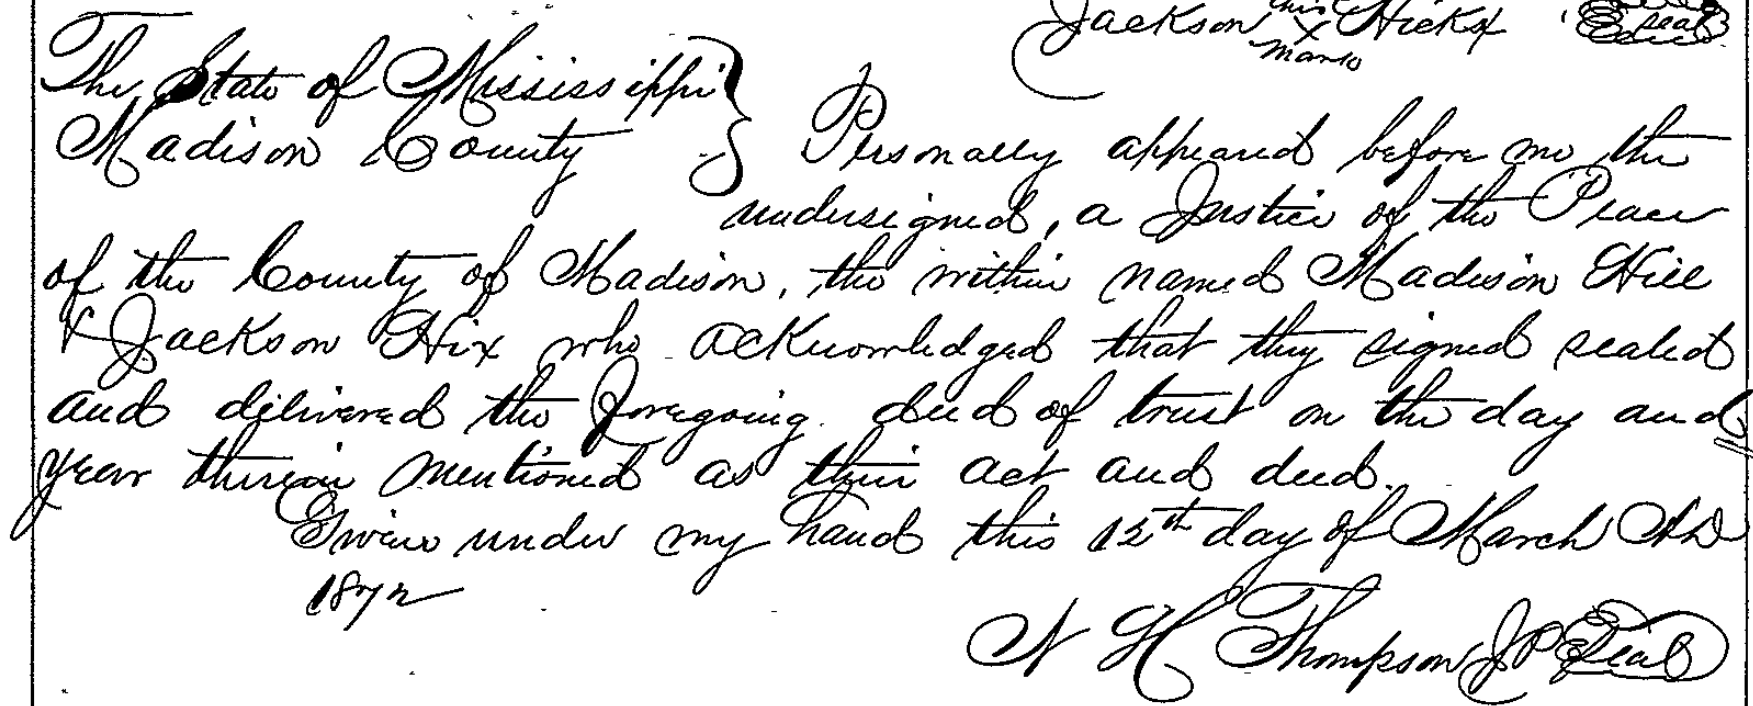 Jackson his x mark Hicks Seal
The State of Mississippi
Madison County } Personally appeared before me the
undersigned, a Justice of the Peace
of the County of Madison, the within named Madison Hill
& Jackson Hix who acknowledged that they signed sealed
and delivered the foregoing deed of trust on the day and
year therein mentioned as their act and deed.
Given under my hand this 12th day of March AD
1872
N H Thompson JP Seal